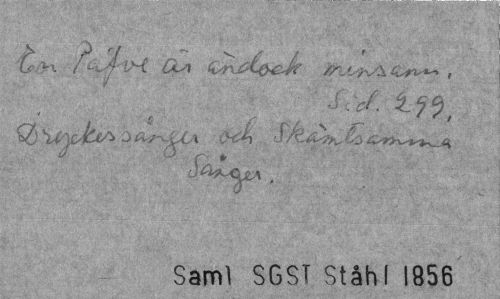 En Påfve är ändock minsann.
Sid. 299.
Dryckessånger och Skämtsamma
Sånger.
Saml SGST Ståhl 1856